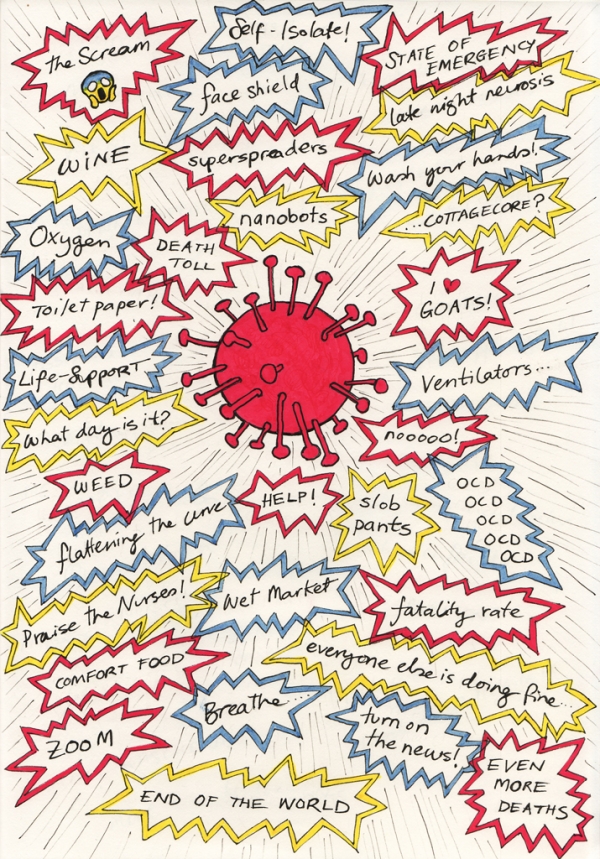 the Scream
Self-Isolate!
STATE OF
EMERGENCY
face shield
late night neurosis
WiNE
superspreaders
Wash your hands!
nanobots
...COTTAGECORE?
Oxygen
DEATH
TOLL
I ♥
GOATS!
Toilet paper!
Life-Support
Ventilators...
What day is it?
nooooo!
WEED
HELP!
slob
pants
OCD
OCD
OCD
OCD
OCD
flattening the curve
Praise the Nurses!
Wet Market
fatality rate
COMFORT FOOD
everyone else is doing fine...
Breathe...
turn on
the news!
ZOOM
EVEN
MORE
DEATHS
END OF THE WORLD